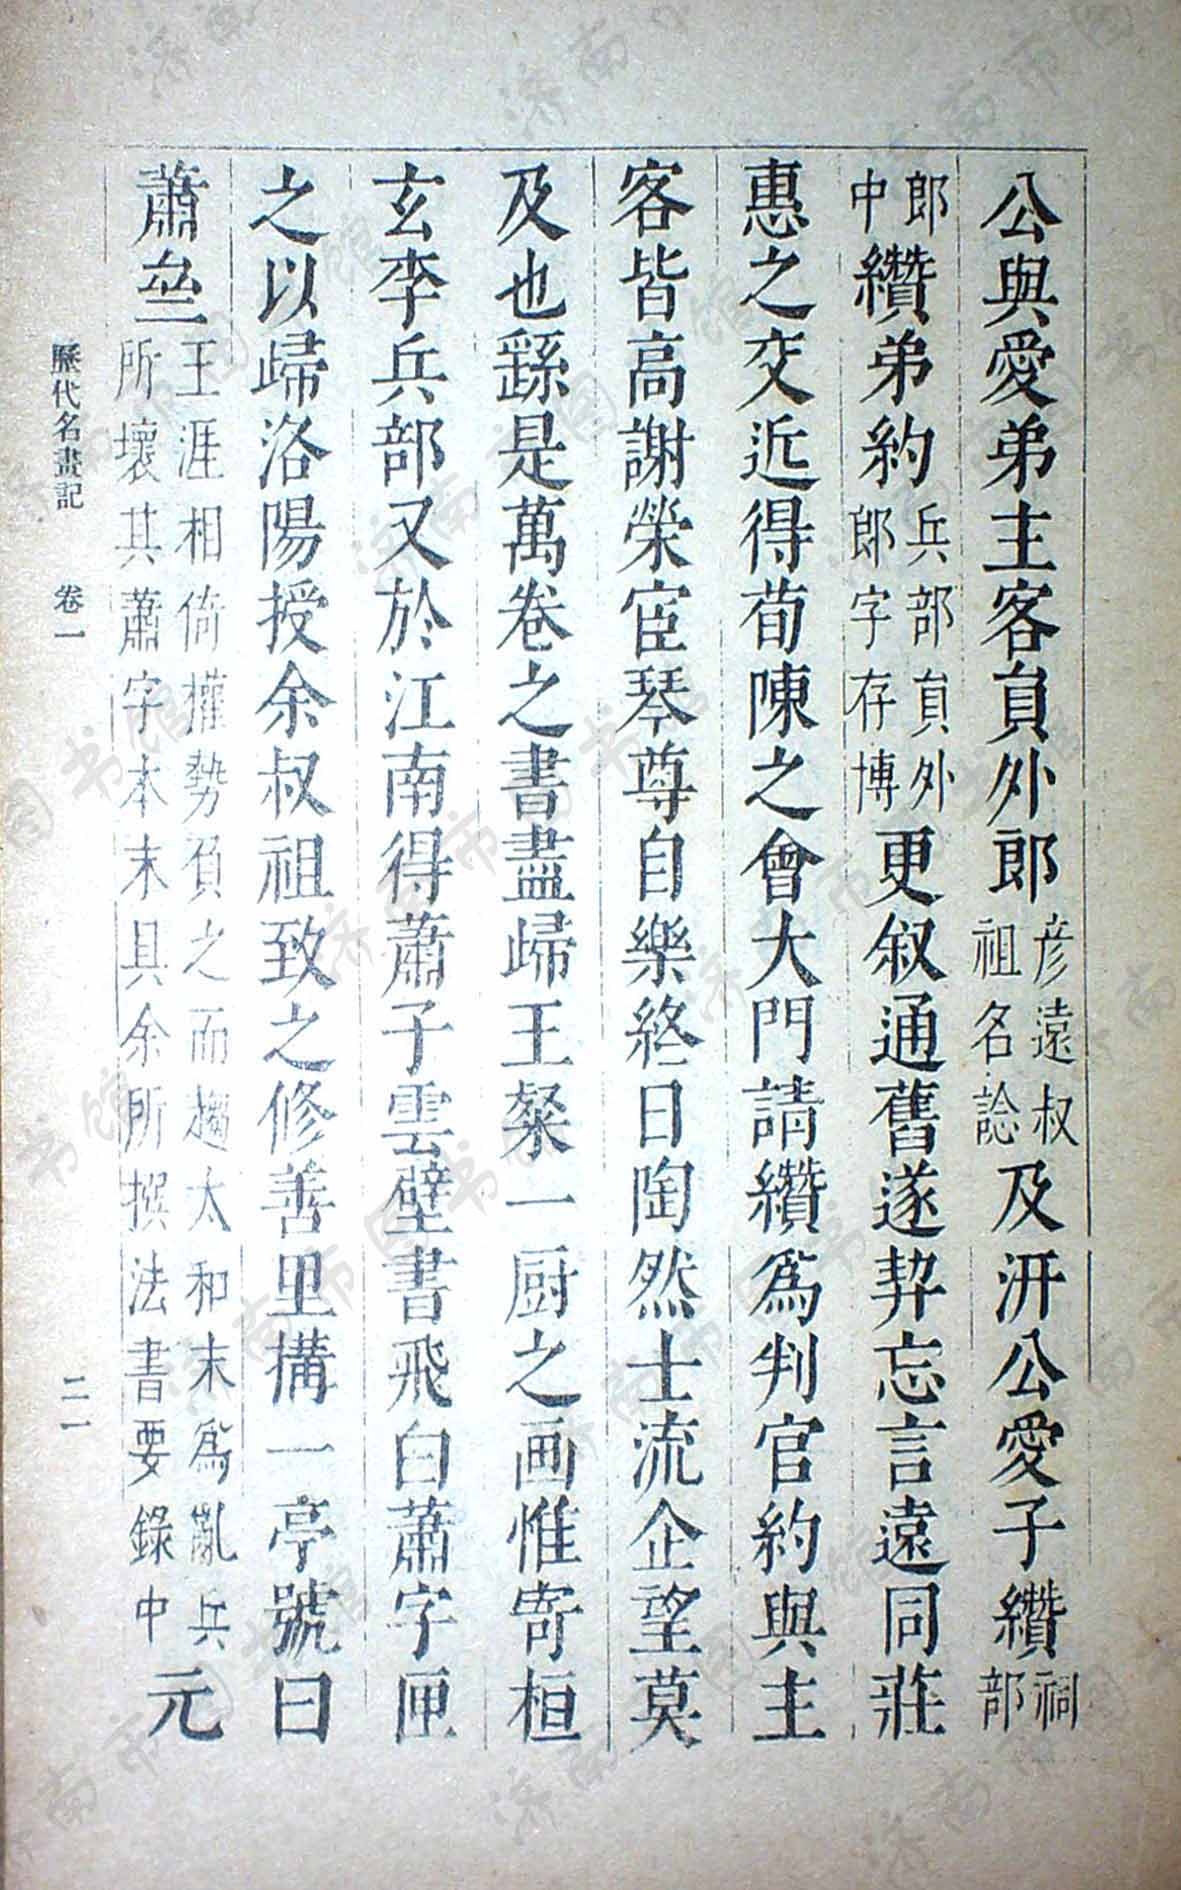 公與愛弟主客貟外郎彦遠叔祖名諗及汧公愛子纘祠部
郎中纘弟約兵部貟外郎字存博更叙通舊遂契忘言遠同莊
惠之交近得荀陳之會大門請纘爲判官約與主
客皆高謝榮宦琴尊自樂終日陶然士流企望莫
及也繇是萬卷之書盡歸王粲一厨之画惟寄桓
玄李兵部又於江南得蕭子雲壁書飛白蕭字匣
之以歸洛陽授余叔祖致之修善里搆一亭號曰
蕭亝王涯相倚權勢負之而趨太和末爲亂兵所壞其蕭字本末具余所撰法書要錄中元
歷代名畫記 卷一 二一